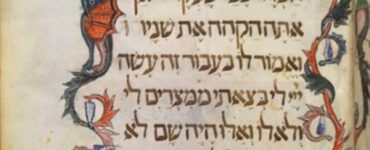 אתה הקהה את שניו ו
ואמור לו בעבור זה עשה
ייי לי בצאתי ממצרים לי
ולא לו ואלו היה שם לא